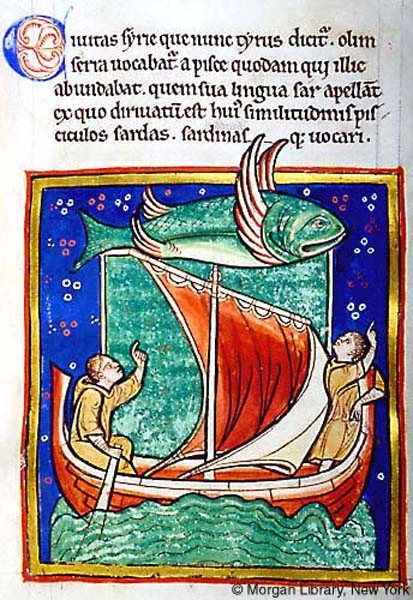 Civitas syrie que nunc tyrus dicit̄. olim
seria vocabat̄ a pisce quodam qui illic
abundabat. quem sua lingua sar apellāt
ex quo dirivatū est hui᾽ similitudinis pis
ciculos sardas. sardinas q; vocari.
© Morgan Library, New York